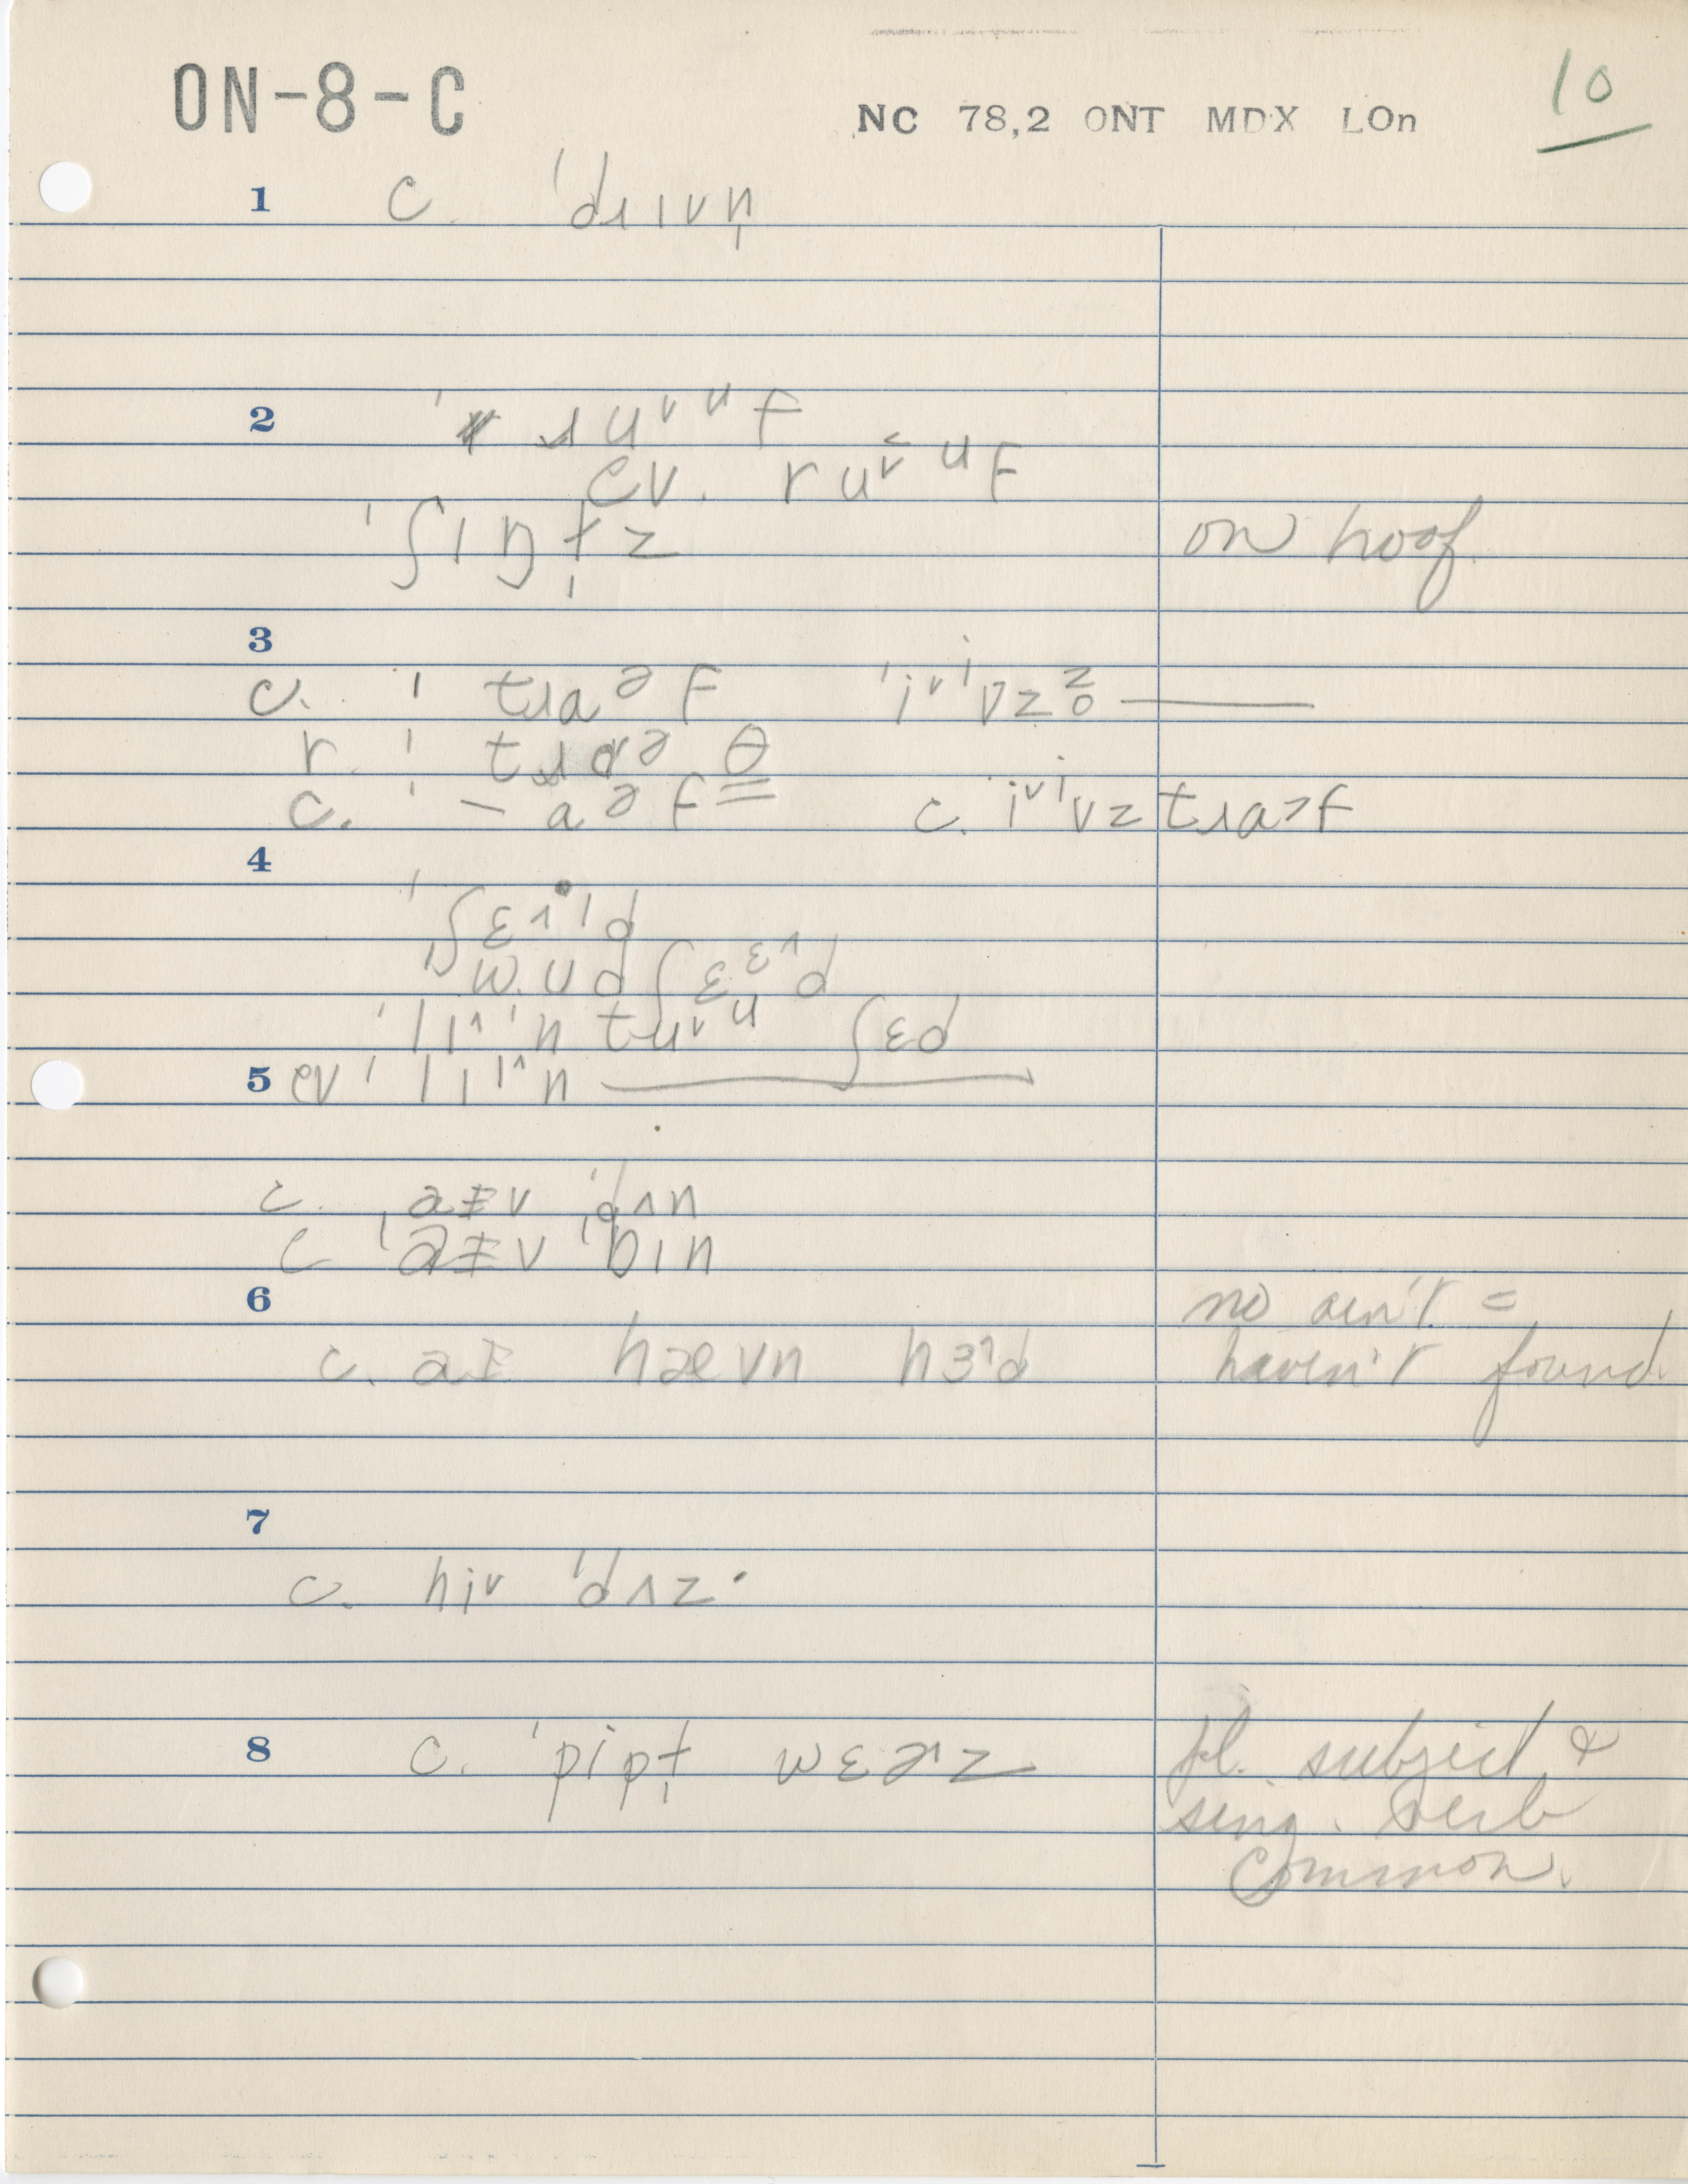 ON-8-C
NC 78,2 ONT MDX LOn 10
1 c. ˈdɹɪvn̩
2 ˈɹuᵛᵘf
cv. ruᵛᵘf
ˈʃɪŋɫ̩z on hoof.
3
c. ˈtɹɑᵊf ˈiᵛⁱvz
r. ˈtɹɑᵊθ
c. ˈ– ɑᵊf c. iᵛⁱvztɹɑɔf
4
ˈʃɛ^ɪd
wudʃɛᵋ^d
ˈlɪ^ˈn tuᵛᵘ ʃɛd
5 cv ˈlɪˈ^n
c. aɪv ˈdʌn
c ˈaɪv ˈbɪn
6 no ain't =
c. aɪ hævn hɜ^d haven't found.
7
c. hiᵛ ˈdʌz·
8 c. ˈpipɫ̩ wɛɚz pl. subject &
sing. verb
common.